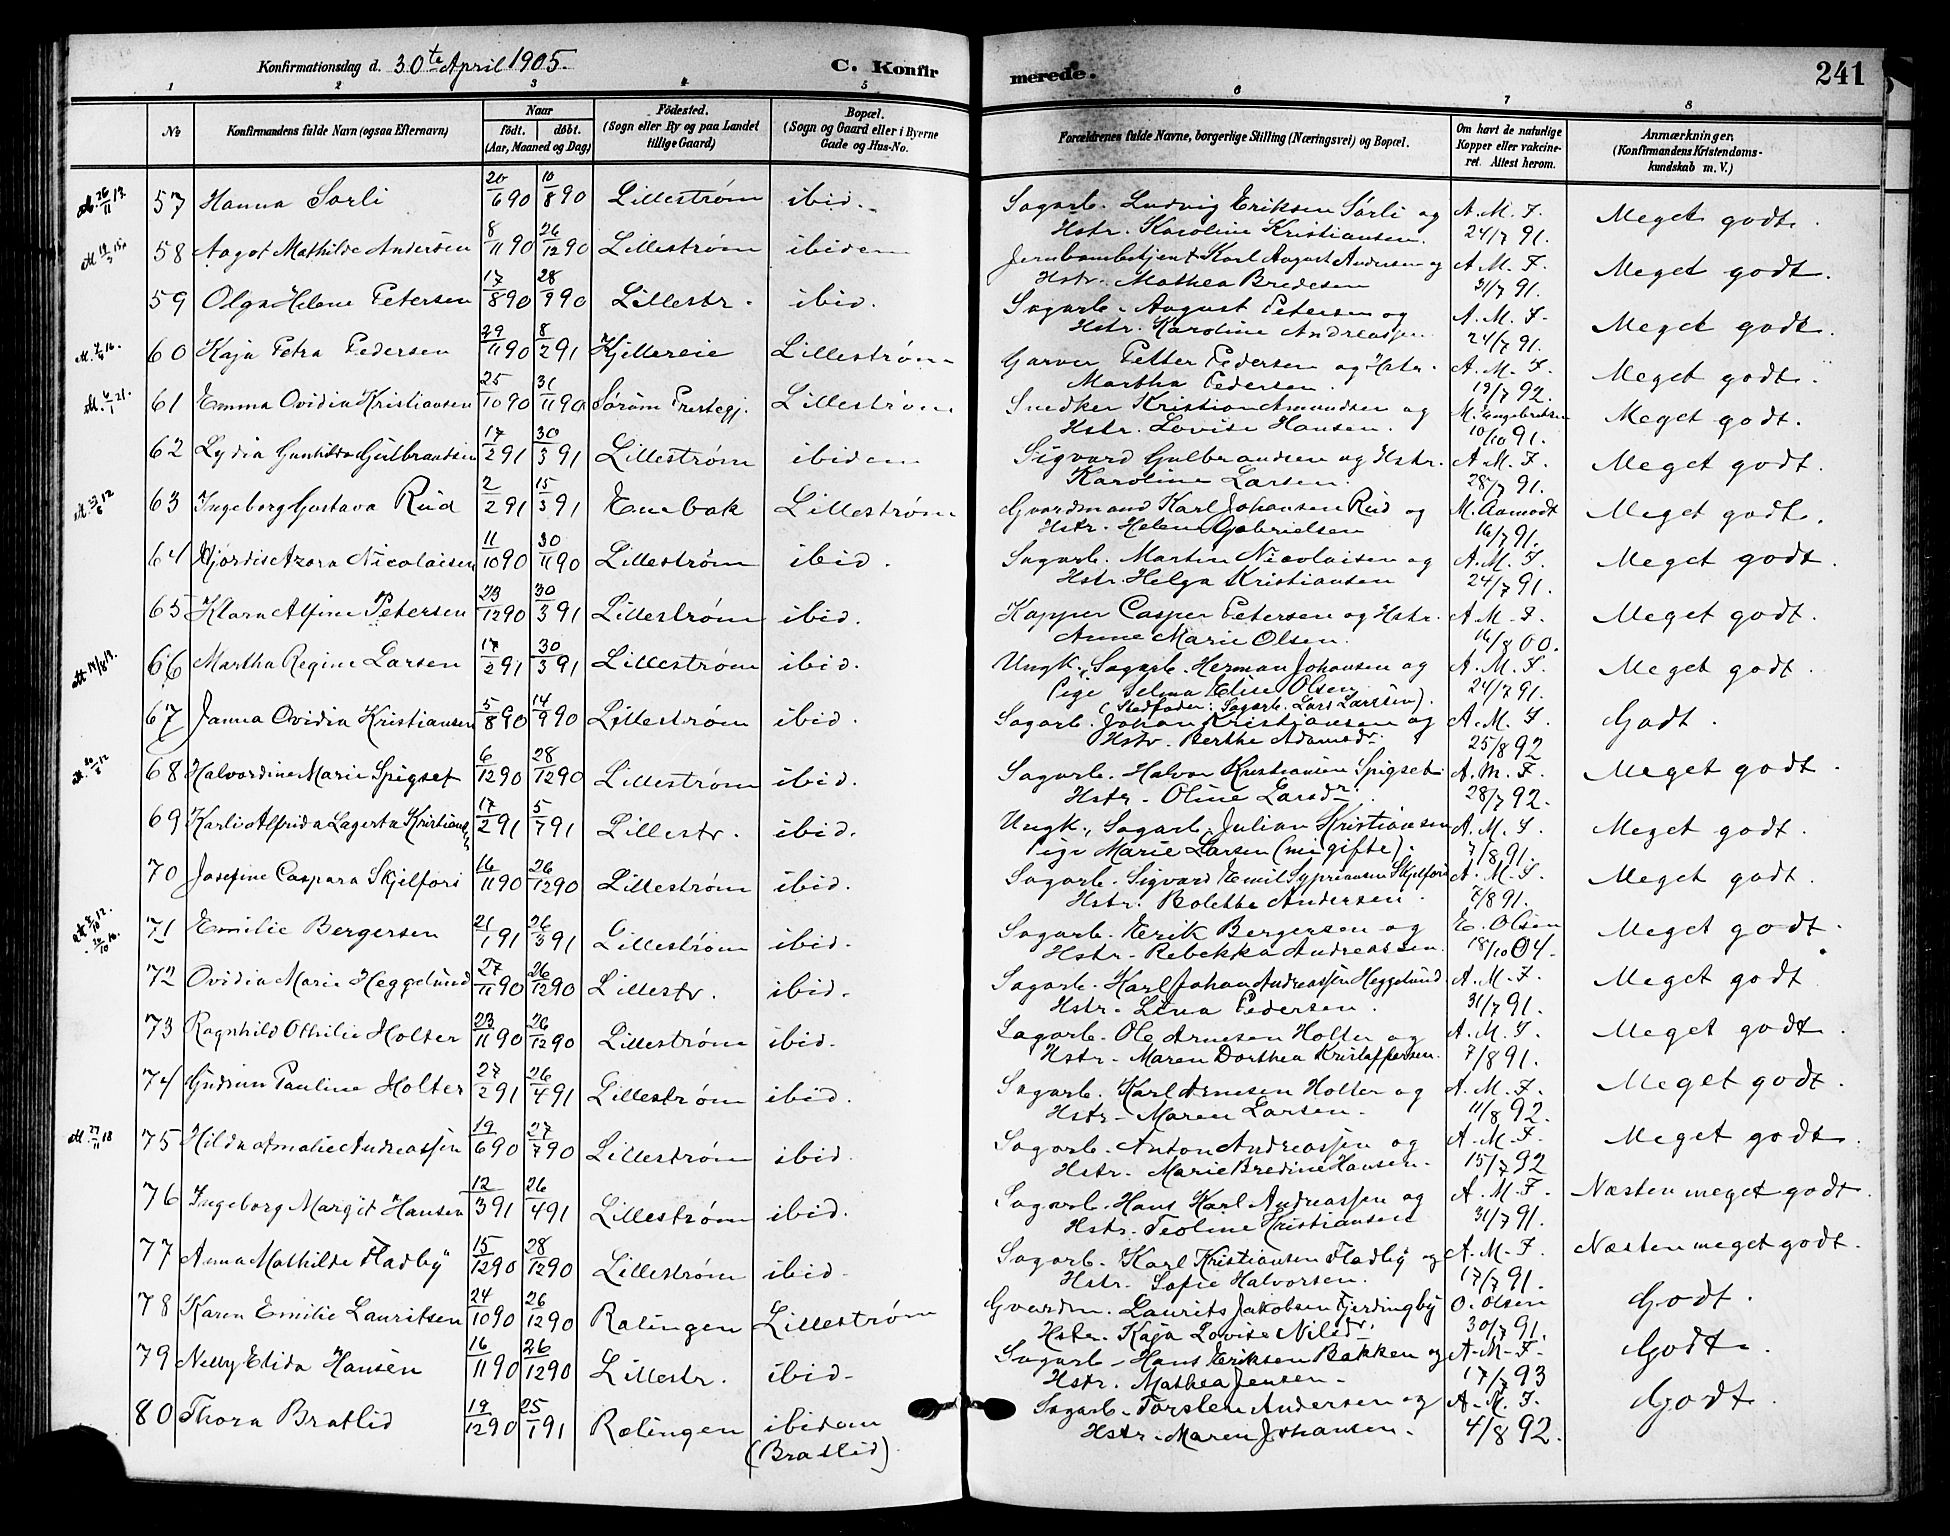 Konfirmationsdag d. 30te April 1905. C. Konfirmerede. 241
1 2 3 4 5 6 7 8
No Konfirmandens fulde Navn (ogsaa Efternavn) Naar födt. döbt. (Aar, Maaned og Dag) Födested. (Sogn eller By og paa Landet tillige Gaard) Bopæl. (Sogn og Gaard eller i Byerne Gade og Hus-No. Forældrenes fulde Navne, borgerlige Stilling (Næringsvei) og Bopæl. Om havt de naturlige Kopper eller vakcineret. Attest herom. Anmærkninger. (Konfirmandens Kristendomskundskab m. V.)
57 Hanna Sørli 20/6 90 10/8 90 Lillestrøm ibid. Sagarb. Ludvig Eriksen Sørli og A. M. F. Meget godt.
Hstr. Karoline Kristiansen. 24/7 91.
58 Aagot Mathilde Andersen 8/11 90 26/12 90 Lillestrøm ibidem Jernbanebetjent Karl August Andersen og A. M. F. Meget godt.
Hstr. Mathea Bredesen 31/7 91.
59 Olga Helene Petersen 17/8 90 28/9 90 Lillestr. ibid. Sagarb. August Petersen og A. M. F. Meget godt.
Hstr. Karoline Andreassen 24/7 91.
60 Kaja Petra Pedersen 29/11 90 8/2 91 Kjellereie Lillestrøm Garver Petter Pedersen og Hstr. A. M. F. Meget godt.
Martha Pedersen. 19/7 92.
61 Emma Ovidia Kristiansen 25/10 90 31/11 90 Sørum Prestegj. Lillestrøm Snedker Kristian Amundsen og M. Engebretsen Meget godt.
Hstr. Lovise Hansen. 10/10 91.
62 Lydia Gunhilda Gulbrandsen 17/2 91 30/3 91 Lillestrøm ibidem Sigvard Gulbrandsen og Hstr. A. M. F. Meget godt.
Karoline Larsen. 28/7 91.
63 Ingeborg Gustava Rud 2/2 91 15/3 91 Enebak Lillestrøm Gvardmand Karl Johansen Rud og M. Aamodt Meget godt.
Hstr. Helene Gabrielsen 16/7 91.
64 Hjørdis Azora Nicolaisen 11/10 90 30/11 90 Lillestrøm ibid. Sagarb. Martin Nicolaisen og A. M. F. Meget godt.
Hstr. Helga Kristiansen 24/7 91.
65 Klara Alfine Petersen 23/12 90 30/3 91 Lillestrøm ibid. Kapper Casper Petersen og Hstr. A. M. F. Meget godt.
Anne Marie Olsen. 16/8 00.
66 Martha Regine Larsen 17/2 91 30/3 91 Lillestrøm ibid. Ungk., Sagarb. Herman Johansen og A. M. F. Meget godt.
Pige Selma Elise Olsen 24/7 91.
(Stedfader: Sagarb. Lars Larsen).
67 Janna Ovidia Kristiansen 5/8 90 14/9 90 Lillestrøm ibid. Sagarb. Johan Kristiansen og A. M. F. Godt.
Hstr. Berthe Adamsdr. 25/8 92
68 Halvordine Marie Spigset 6/12 90 28/12 90 Lillestrøm ibid. Sagarb. Halvor Kristiansen Spigset A. M. F. Meget godt.
Hstr. Oline Larsdr. 28/7 92.
69 Karli Alfrida Lagerta Kristians 17/2 91 5/7 91 Lillestr. ibid. Ungk., Sagarb. Julian Kristiansen A. M. F. Meget godt.
Pige Marie Larsen (nu gifte). 7/8 91.
70 Josefine Caspara Skjelfors 16/11 90 26/12 90 Lillestrøm ibid. Sagarb. Sigvard Emil Sypriansen Skjelfors A. M. F. Meget godt.
Hstr. Bolette Andersen. 7/8 91.
71 Emilie Bergersen 21/1 91 26/3 91 Lillestrøm ibid. Sagarb. Erik Bergersen og E. Olsen Meget godt.
Hstr. Rebekka Andreassen. 18/10 04.
72 Ovidia Marie Heggelund 27/11 90 26/12 90 Lillestr. ibid. Sagarb. Karl Johan Andreassen Heggelund A. M. F. Meget godt
Hstr. Lina Pedersen. 31/7 91.
73 Ragnhild Othilie Holter 23/11 90 26/12 90 Lillestrøm ibid. Sagarb. Ole Arnesen Holter og A. M. F. Meget godt.
Hstr. Maren Dorthea Kristoffersen. 7/8 91.
74 Gudrun Pauline Holter 27/2 91 26/4 91 Lillestrøm ibid. Sagarb. Karl Arnesen Holter og A. M. F. Meget godt.
Hstr. Maren Larsen. 11/8 92.
75 Hilda Amalie Andreassen 19/6 90 27/7 90 Lillestrøm ibid. Sagarb. Anton Andreassen og A. M. F. Meget godt.
Hstr. Marie Bredine Hansen. 15/7 92
76 Ingeborg Margit Hansen 12/3 91 26/4 91 Lillestrøm ibid. Sagarb. Hans Karl Andreassen og A. M. F. Næsten meget godt.
Hstr. Teoline Kristiansen 31/7 91.
77 Anna Mathilde Fladby 15/12 90 28/12 90 Lillestrøm ibid. Sagarb. Karl Kristiansen Fladby og A. M. F. Næsten meget godt.
Hstr. Sofie Halvorsen. 17/7 91.
78 Karen Emilie Lauritsen 24/10 90 26/12 90 Rælingen Lillestrøm Gvardm. Laurits Jakobsen Fjerdingby O. Olsen Godt.
Hstr. Kaja Lovise Nilsdr. 30/7 91.
79 Nelly Elida Hansen 16/11 90 26/12 90 Lillestr. ibid. Sagarb. Hans Eriksen Bakken og A. M. F. Godt.
Hstr. Mathea Jensen. 17/7 93
80 Thora Bratlid 19/12 90 25/1 91 Rælingen ibidem Sagarb. Torsten Andersen og A. M. F. Godt.
(Bratlid) Hstr. Maren Johansen. 4/8 92.